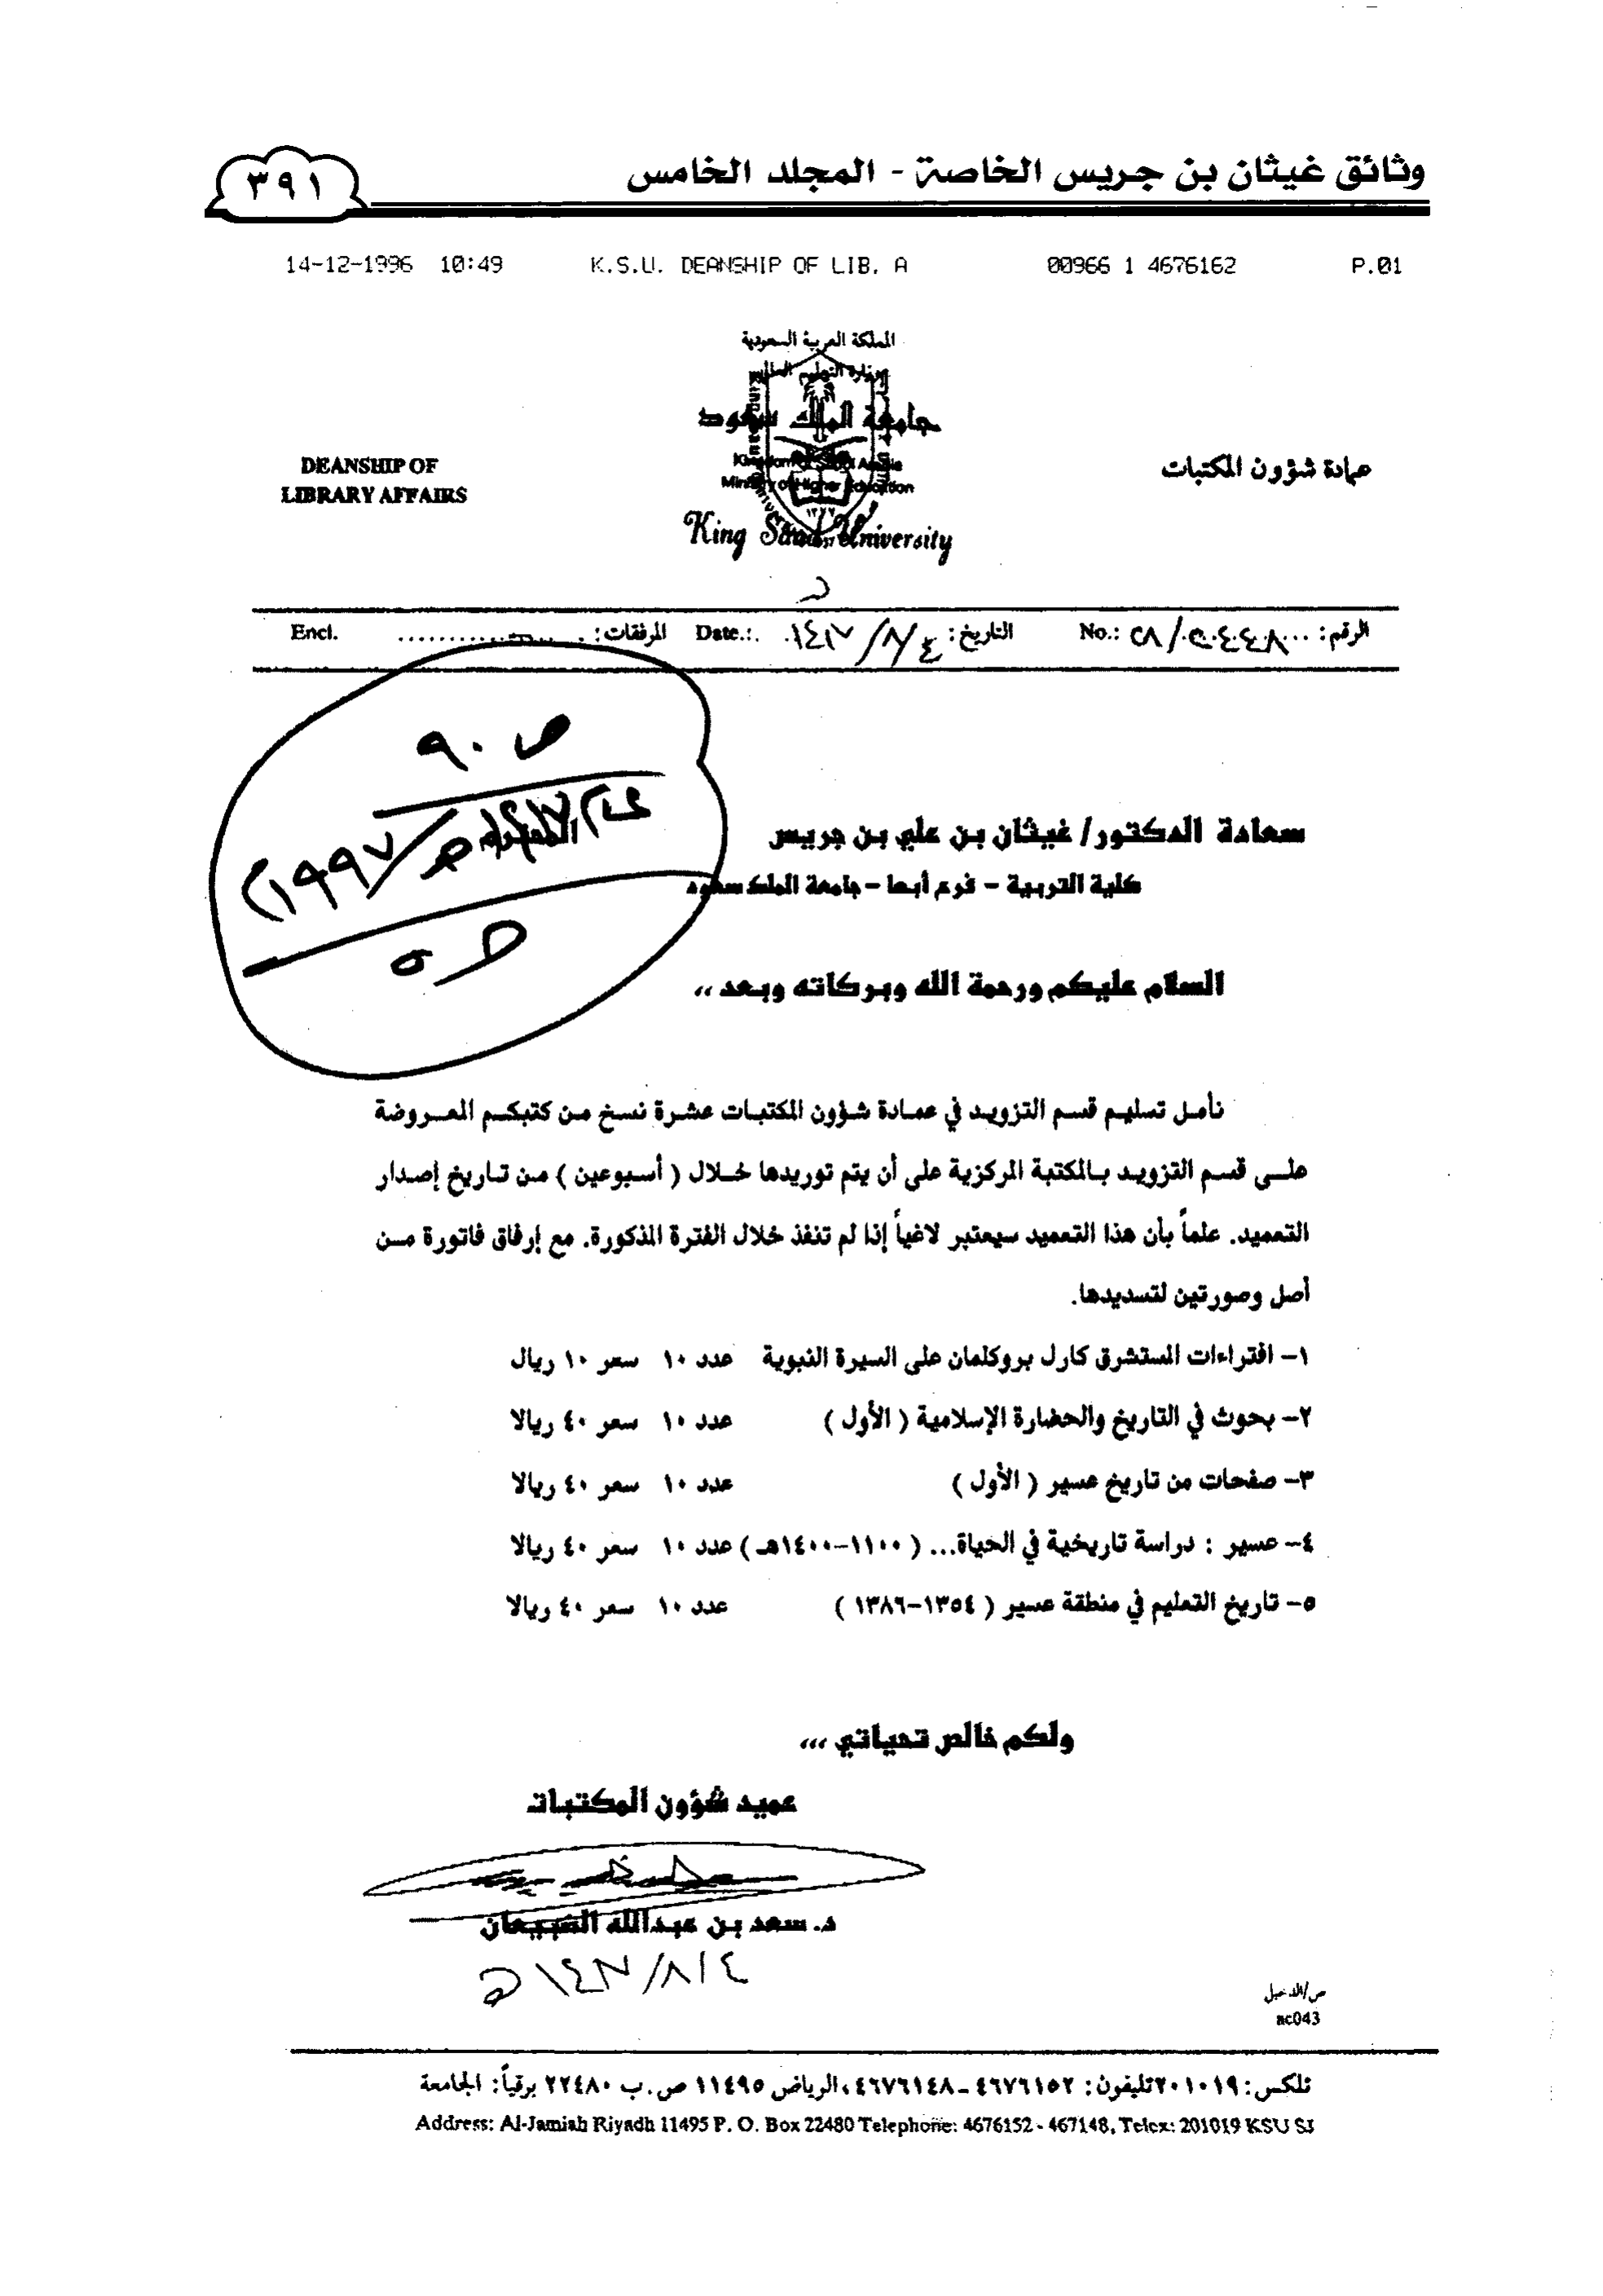 وثائق غيثان بن جريس الخاصة - المجلد الخامس
٣٩١
14-12-1996 10:49 K.S.U. DEANSHIP OF LIB. A 00966 1 4676162 P.01
المملكة العربية السعودية
وزارة التعليم العالي
جامعة الملك سعود
Kingdom of Saudi Arabia
Ministry of Higher Education
١٣٧٧
King Saud University
عمادة شؤون المكتبات
DEANSHIP OF
LIBRARY AFFAIRS
الرقم: No.: التاريخ: ١٤١٧/٨/٤ Date.:. المرفقات: Encl.
ص ٩٠
١٩٩٧م)
سعادة الدكتور/ غيثان بن علي بن جريس
كلية التربية - فرع أبها - جامعة الملك سعود
السلام عليكم ورحمة الله وبركاته وبعد ،،
نأمل تسليم قسم التزويد في عمادة شؤون المكتبات عشرة نسخ من كتبكم المعروضة
على قسم التزويد بالمكتبة المركزية على أن يتم توريدها خلال ( أسبوعين ) من تاريخ إصدار
التعميد. علماً بأن هذا التعميد سيعتبر لاغياً إذا لم تنفذ خلال الفترة المذكورة. مع إرفاق فاتورة من
أصل وصورتين لتسديدها.
١- افتراءات المستشرق كارل بروكلمان على السيرة النبوية عدد ١٠ سعر ١٠ ريال
٢- بحوث في التاريخ والحضارة الإسلامية ( الأول ) عدد ١٠ سعر ٤٠ ريالا
٣- صفحات من تاريخ عسير ( الأول ) عدد ١٠ سعر ٤٠ ريالا
٤- عسير : دراسة تاريخية في الحياة... ( ١١٠٠-١٤٠٠هـ ) عدد ١٠ سعر ٤٠ ريالا
٥- تاريخ التعليم في منطقة عسير ( ١٣٥٤-١٣٨٦ ) عدد ١٠ سعر ٤٠ ريالا
ولكم خالص تحياتي ،،،
عميد شؤون المكتبات
د. سعد بن عبدالله الضبيعان
١٤١٧/٨/٤هـ
ص/الدخيل
ac043
تلكس: ٢٠١٠١٩ تليفون: ٤٦٧٦١٥٢ - ٤٦٧٦١٤٨، الرياض ١١٤٩٥ ص.ب ٢٢٤٨٠ برقياً: الجامعة
Address: Al-Jamiah Riyadh 11495 P. O. Box 22480 Telephone: 4676152 - 467148, Telex: 201019 KSU SJ